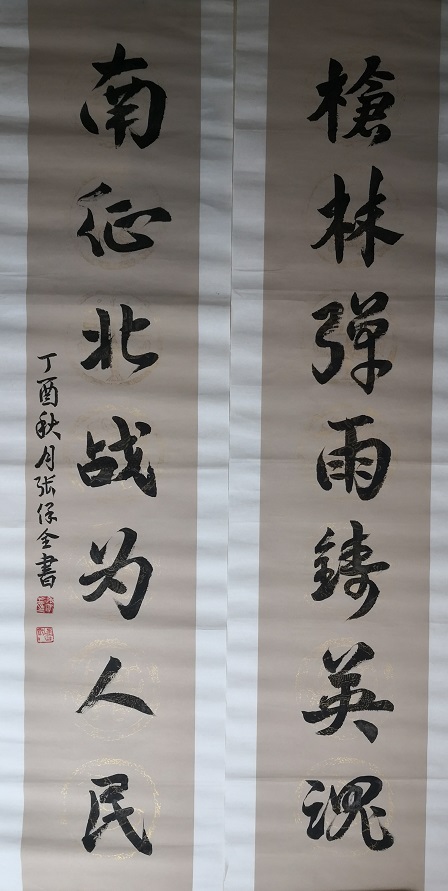 槍林弹雨鑄英魂
南征北战为人民
丁酉秋月张保全書